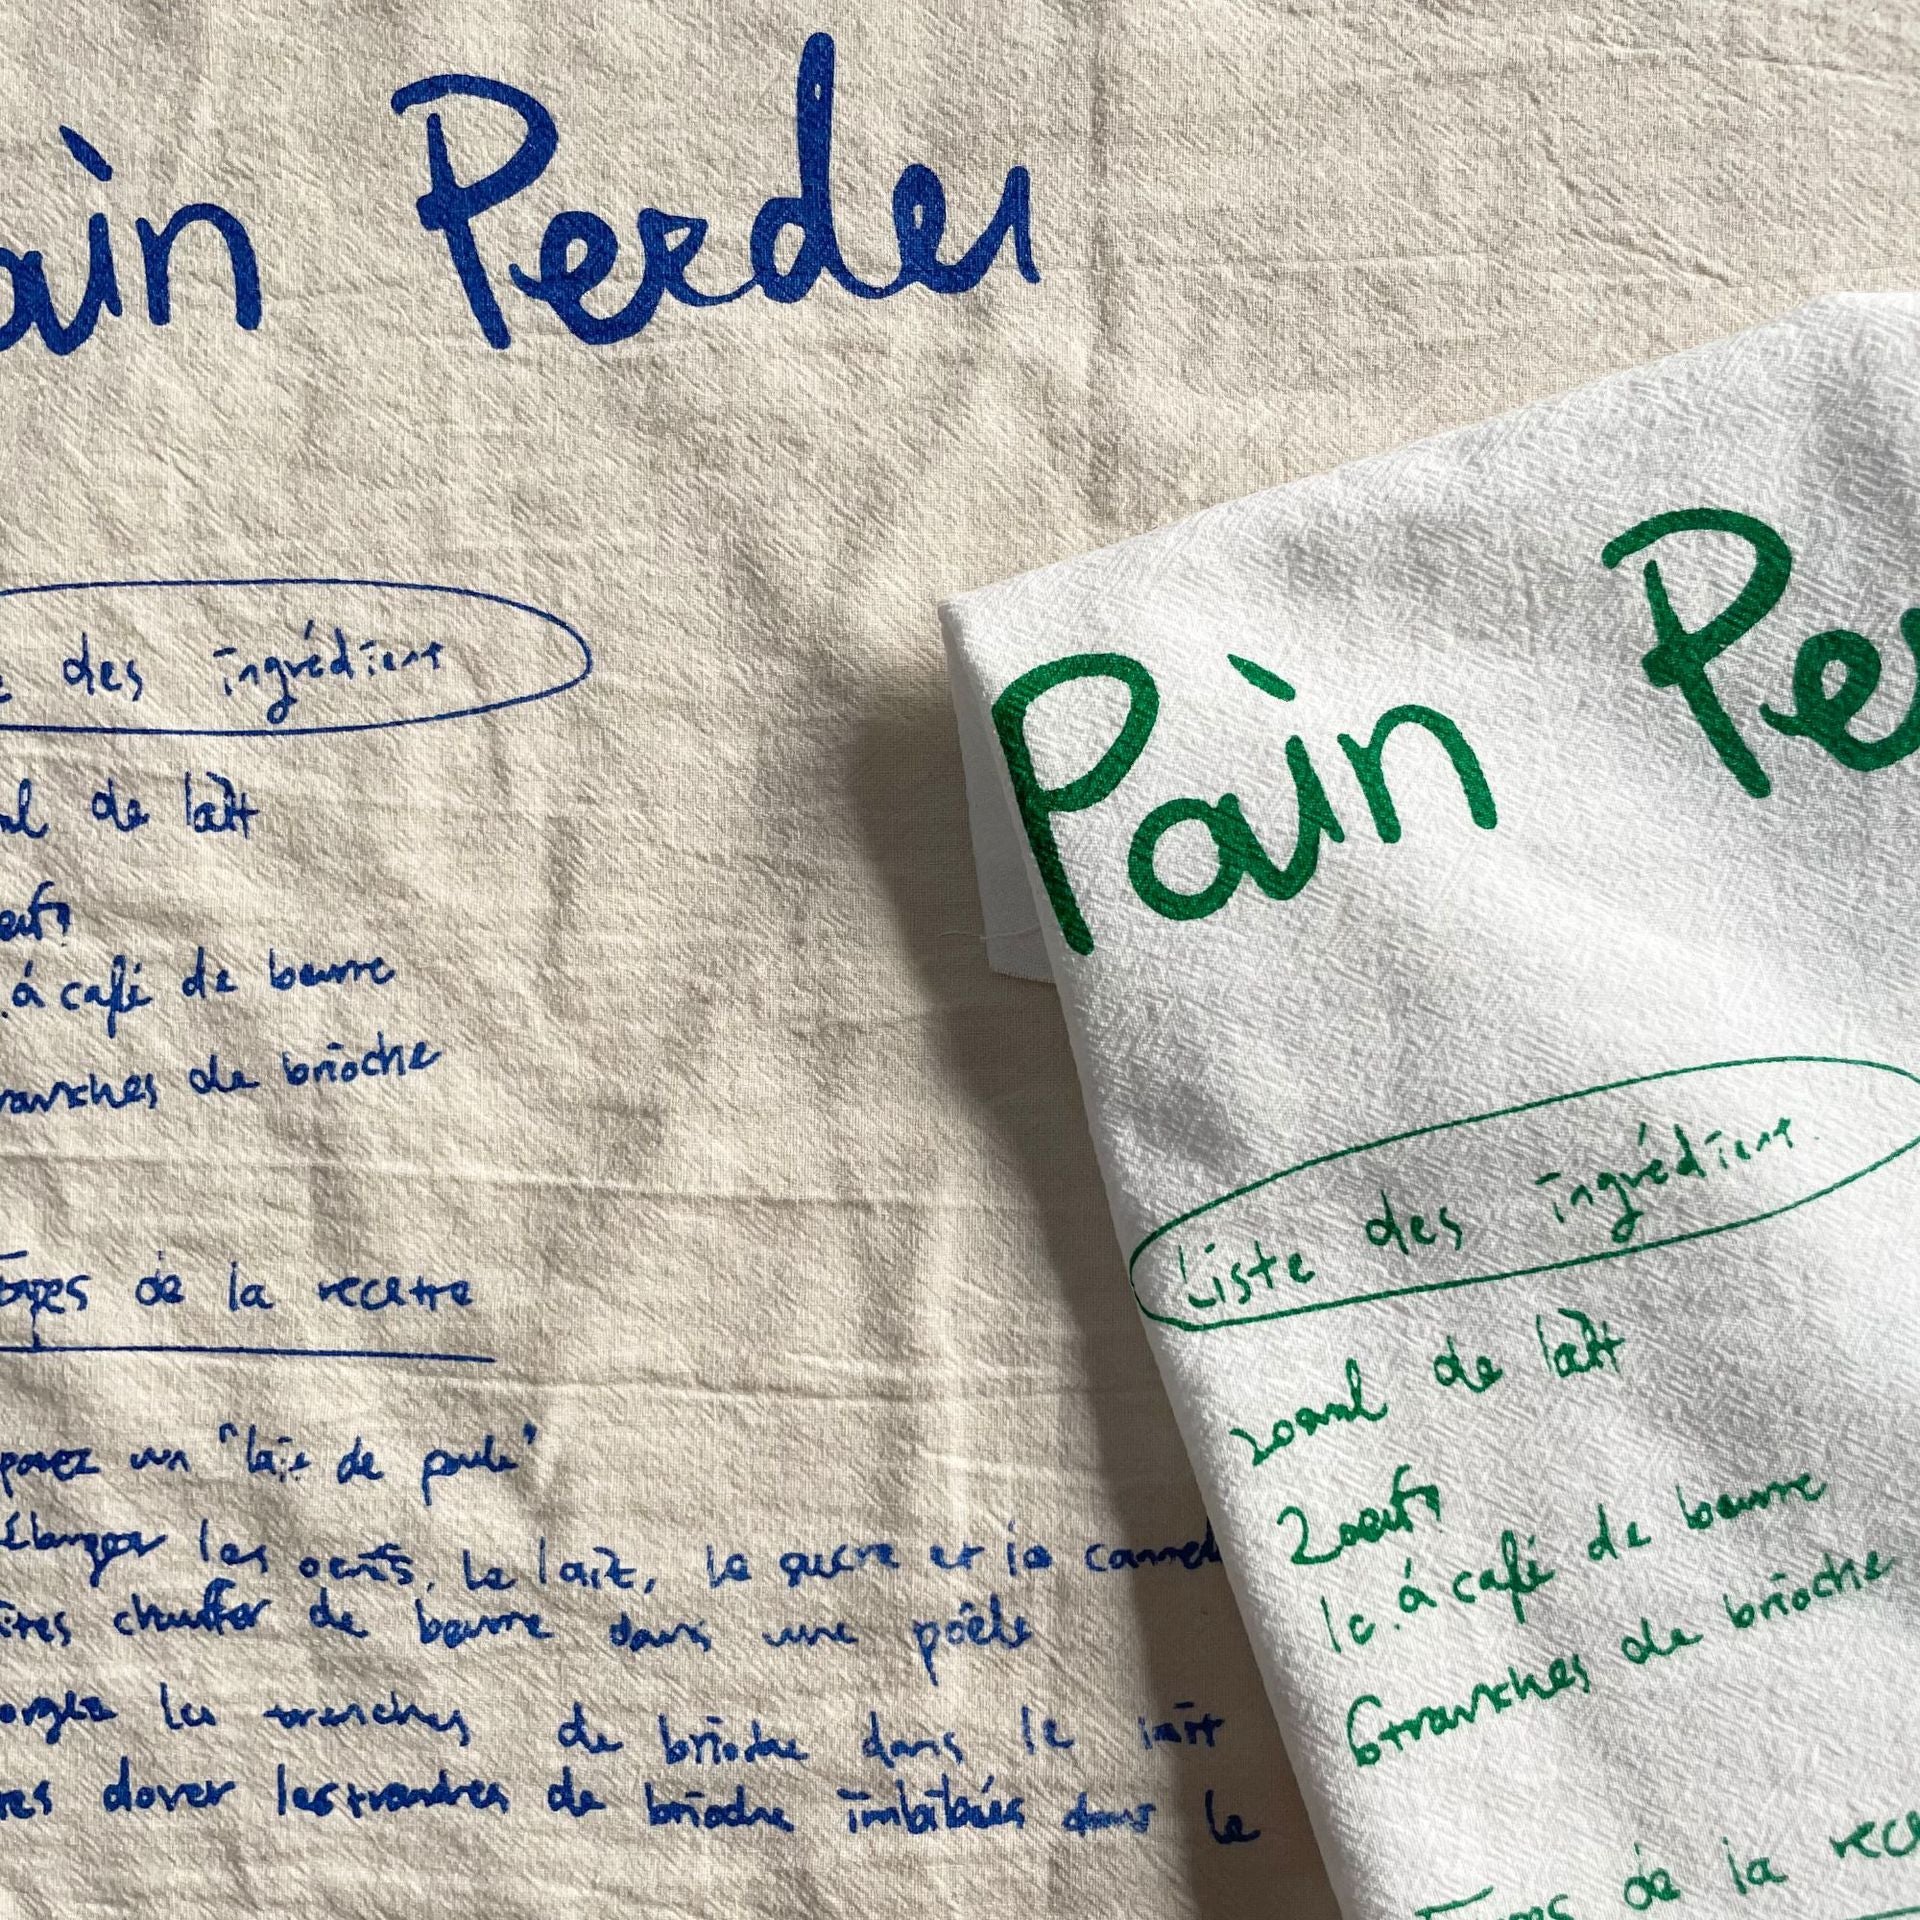 ain Perdu
des ingrédient
ml de lait
oeufs
. à café de beurre
tranches de brioche
Étapes de la recette
parez un "lait de poule"
élanger les oeufs, le lait, le sucre et la cannell
ites chauffer de beurre dans une poêle
ongez les tranches de brioche dans le lait
tes dorer les tranches de brioche imbibées dans le
Pain Per
Liste des ingrédient
200ml de lait
2 oeufs
1c. à café de beurre
6 tranches de brioche
de la rece